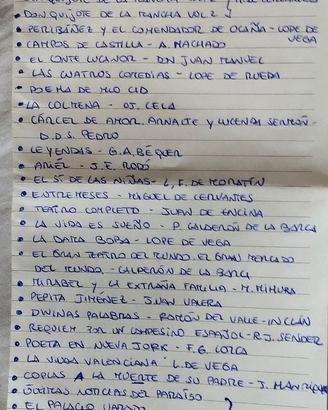 DON QUIJOTE DE LA MANCHA VOL 2
• PERIBÁÑEZ Y EL COMENDADOR DE OCAÑA - LOPE DE VEGA
• CAMPOS DE CASTILLA - A. MACHADO
• EL CONTE LUCANOR - DON JUAN MANUEL
• LAS CUATROS COMEDIAS - LOPE DE RUEDA
• POEMA DE MIO CID
• LA COLMENA - CJ. CELA
• CÁRCEL DE AMOR. ARNALTE Y LUCENDA SERMÓN -
D.D.S. PEDRO
• LEYENDAS - G.A. BÉQUER
• ARIEL - J.E. RODÓ
• EL SÍ DE LAS NIÑAS - L.F. DE MORATÍN
• ENTREMESES - MIGUEL DE CERVANTES
• TEATRO COMPLETO - JUAN DE ENCINA
• LA VIDA ES SUEÑO - P. CALDERÓN DE LA BARCA
• LA DAMA BOBA - LOPE DE VEGA
• EL GRAN TEATRO DEL MUNDO. EL GRAN MERCADO
DEL MUNDO. - CALDERÓN DE LA BARCA
• MIRABEL Y LA EXTRAÑA FAMILIA - M. MIHURA
• PEPITA JIMÉNEZ - JUAN VALERA
• DIVINAS PALABRAS - RAMÓN DEL VALLE-INCLÁN
• REQUIEM POR UN CAMPESINO ESPAÑOL - R.J. SENDER
• POETA EN NUEVA JORK - F.G. LORCA
• LA VIUDA VALENCIANA - L. DE VEGA
• COPLAS A LA MUERTE DE SU PADRE - J. MANRIQUE
• ÚLTIMAS NOTICIAS DEL PARAÍSO
• EL PALACIO